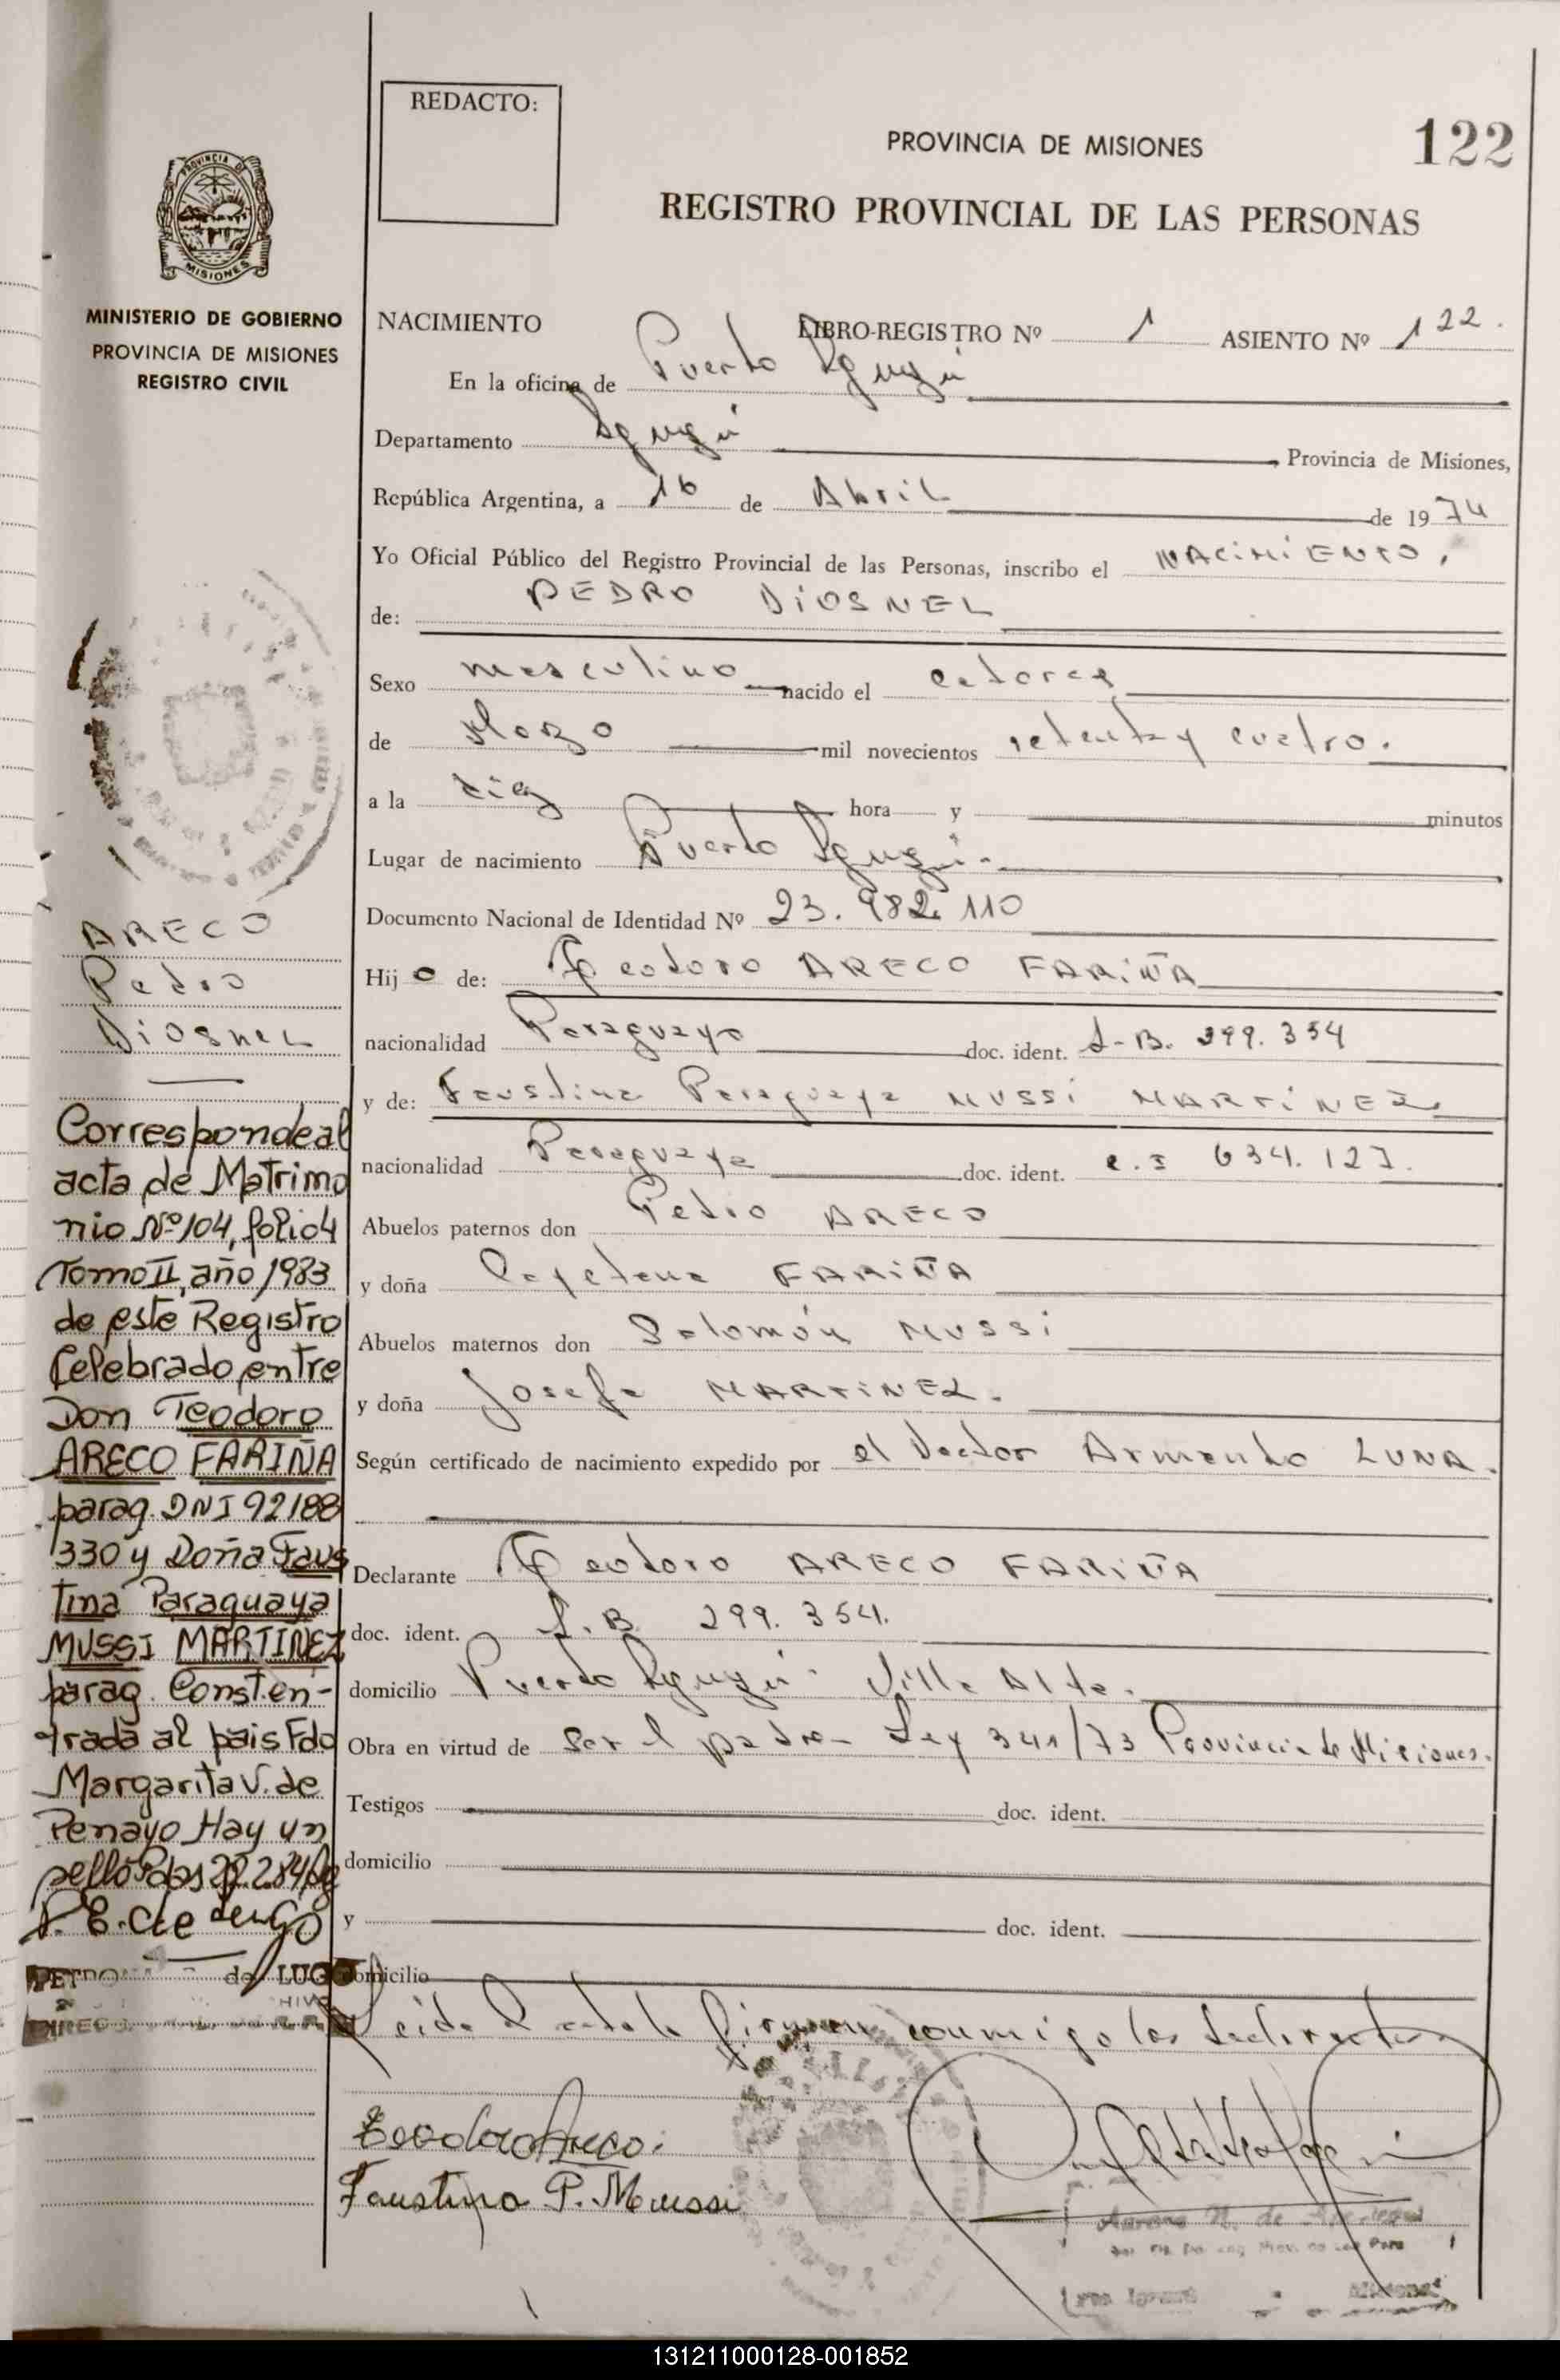 REDACTO:
PROVINCIA DE MISIONES
122
REGISTRO PROVINCIAL DE LAS PERSONAS
PROVINCIA DE
MISIONES
MINISTERIO DE GOBIERNO
PROVINCIA DE MISIONES
REGISTRO CIVIL
NACIMIENTO LIBRO-REGISTRO Nº 1 ASIENTO Nº 122.
En la oficina de Puerto Iguazú
Departamento Iguazú Provincia de Misiones,
República Argentina, a 16 de Abril de 1974
Yo Oficial Público del Registro Provincial de las Personas, inscribo el NACIMIENTO.
de: PEDRO DIOSNEL
Sexo masculino nacido el catorce
de Marzo mil novecientos setenta y cuatro.
a la diez hora y minutos
Lugar de nacimiento Puerto Iguazú.
Documento Nacional de Identidad Nº 23.982.110
Hijo de: Teodoro ARECO FARIÑA
nacionalidad Paraguayo doc. ident. S.B. 299.354
y de: Faustina Paraguaya MUSSI MARTINEZ
nacionalidad Paraguaya doc. ident. c.I 634.127.
Abuelos paternos don Pedro ARECO
y doña Cayetana FARIÑA
Abuelos maternos don Salomón MUSSI
y doña Josefa MARTINEZ.
Según certificado de nacimiento expedido por el Doctor Armando LUNA.
Declarante Teodoro ARECO FARIÑA
doc. ident. S.B. 299.354.
domicilio Puerto Iguazú - Villa Alta.
Obra en virtud de ser el padre - Ley 341/73 Provincia de Misiones.
Testigos doc. ident.
domicilio
y doc. ident.
domicilio
Leida el acta la firman conmigo los declarantes
Teodoro Areco.
Faustina P. Mussi
ARECO
Pedro
Diosnel
Corresponde al
acta de Matrimo
nio Nº 104, folio 4
Tomo II, año 1983
de este Registro
Celebrado entre
Don Teodoro
ARECO FARIÑA
parag. DNI 92188
330 y Doña Faus
tina Paraguaya
MUSSI MARTINEZ
parag. Const.en-
trada al pais Fdo
Margarita V. de
Penayo Hay un
sello
de LUGO
131211000128-001852